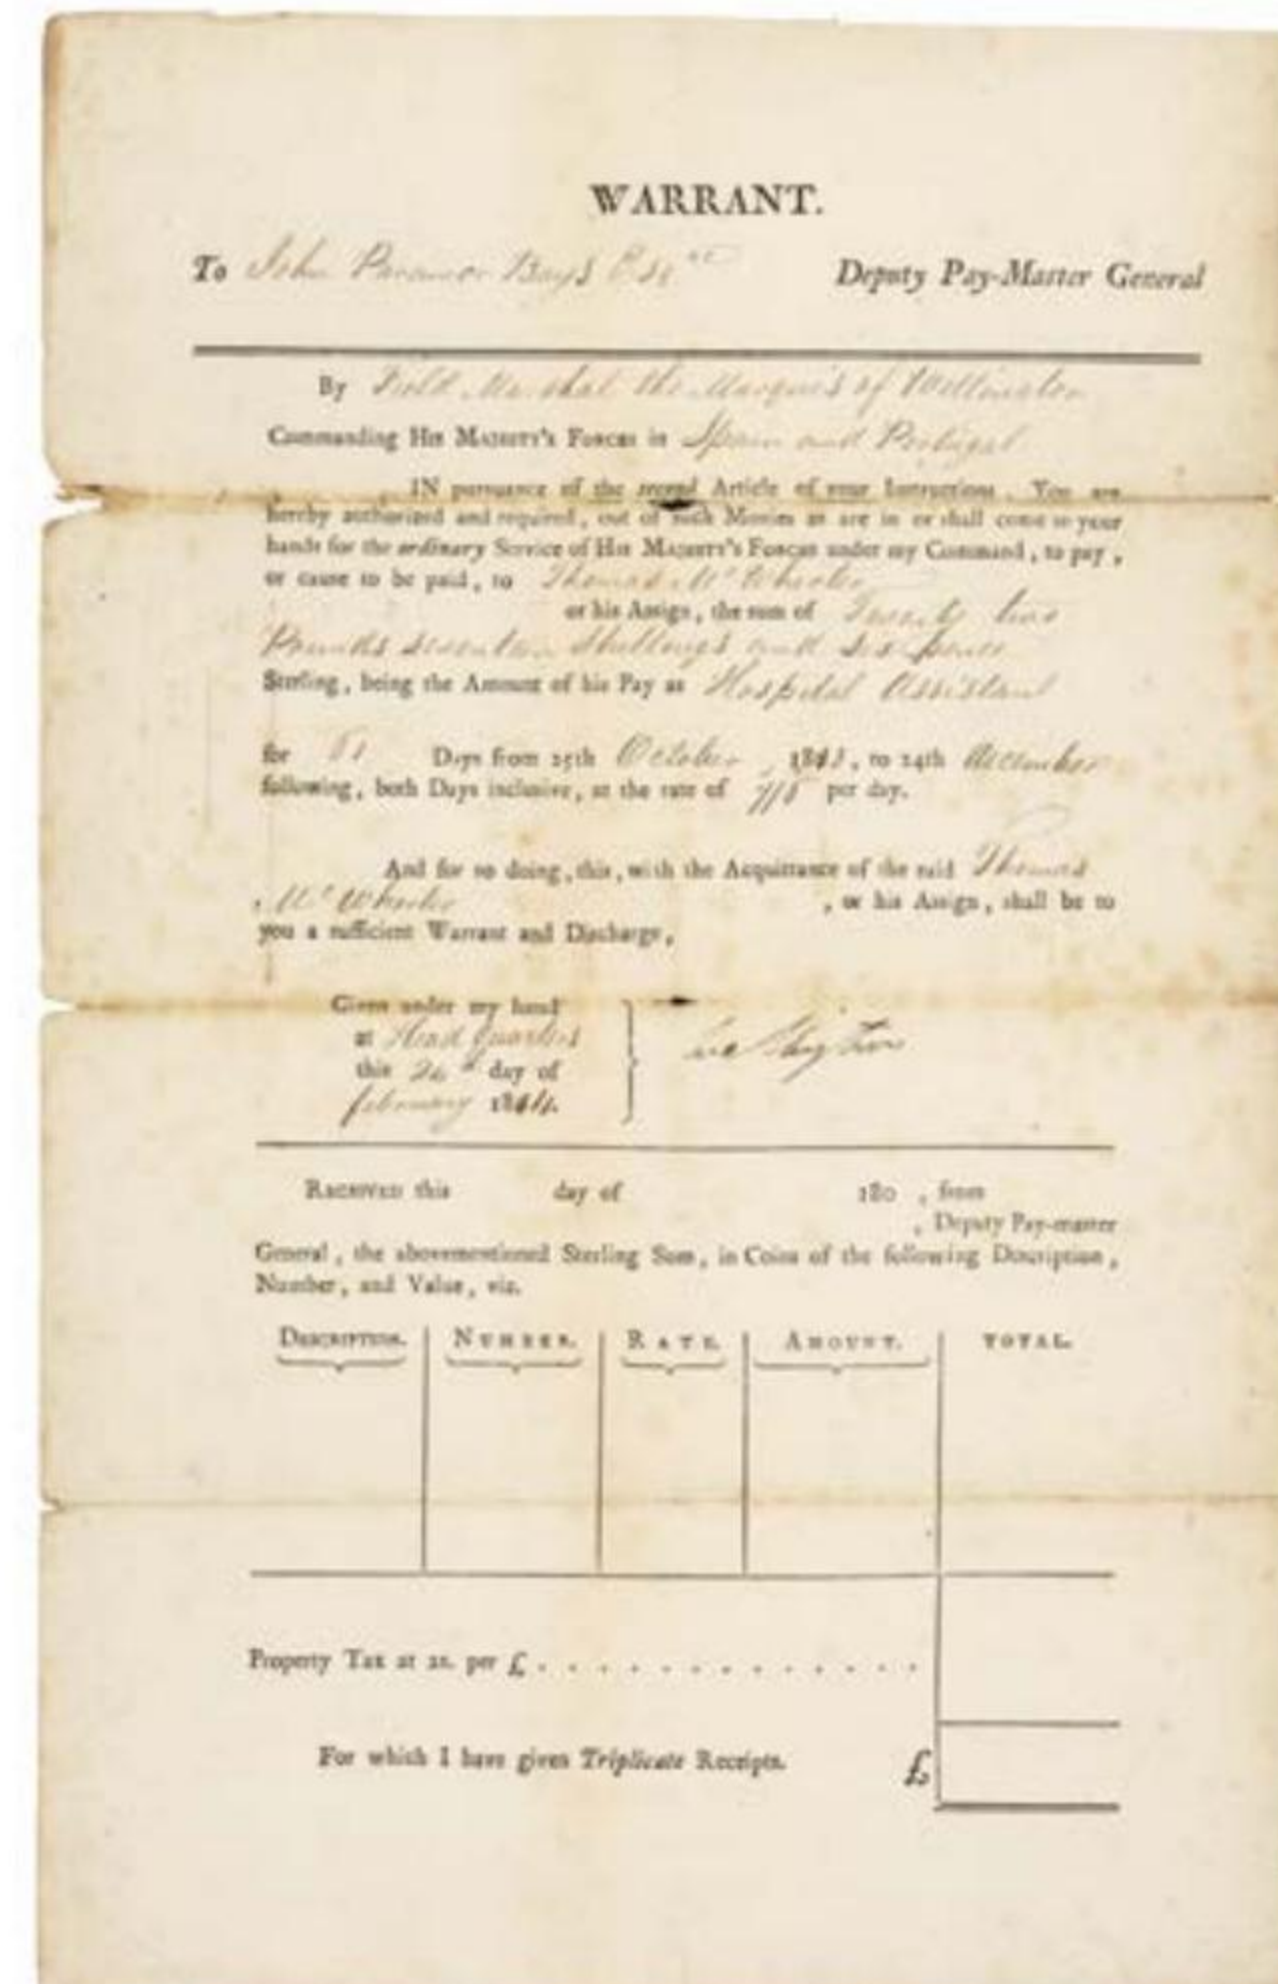 WARRANT.
To John Paramor Boys Esq.re Deputy Pay-Master General
By Field Marshal the Marquis of Wellington
Commanding His MAJESTY's FORCES in Spain and Portugal
IN pursuance of the second Article of your Instructions. You are
hereby authorized and required, out of such Monies as are in or shall come to your
hands for the ordinary Service of His MAJESTY's FORCES under my Command, to pay,
or cause to be paid, to Thomas Mc Wheeler
or his Assign, the sum of Twenty two
Pounds seventeen Shillings and six pence
Sterling, being the Amount of his Pay as Hospital Assistant
for 61 Days from 25th October, 1813, to 24th December
following, both Days inclusive, at the rate of 7/6 per day.
And for so doing, this, with the Acquittance of the said Thomas
Mc Wheeler, or his Assign, shall be to
you a sufficient Warrant and Discharge,
Given under my hand
at Head Quarters
this day of
february 1814.
Wellington
RECEIVED this day of 180 , from
, Deputy Pay-master
General, the abovementioned Sterling Sum, in Coins of the following Description,
Number, and Value, viz.
DESCRIPTION. NUMBER. RATE. AMOUNT. TOTAL.
Property Tax at 2s. per £ . . . . . . . . . . . . . .
For which I have given Triplicate Receipts. £